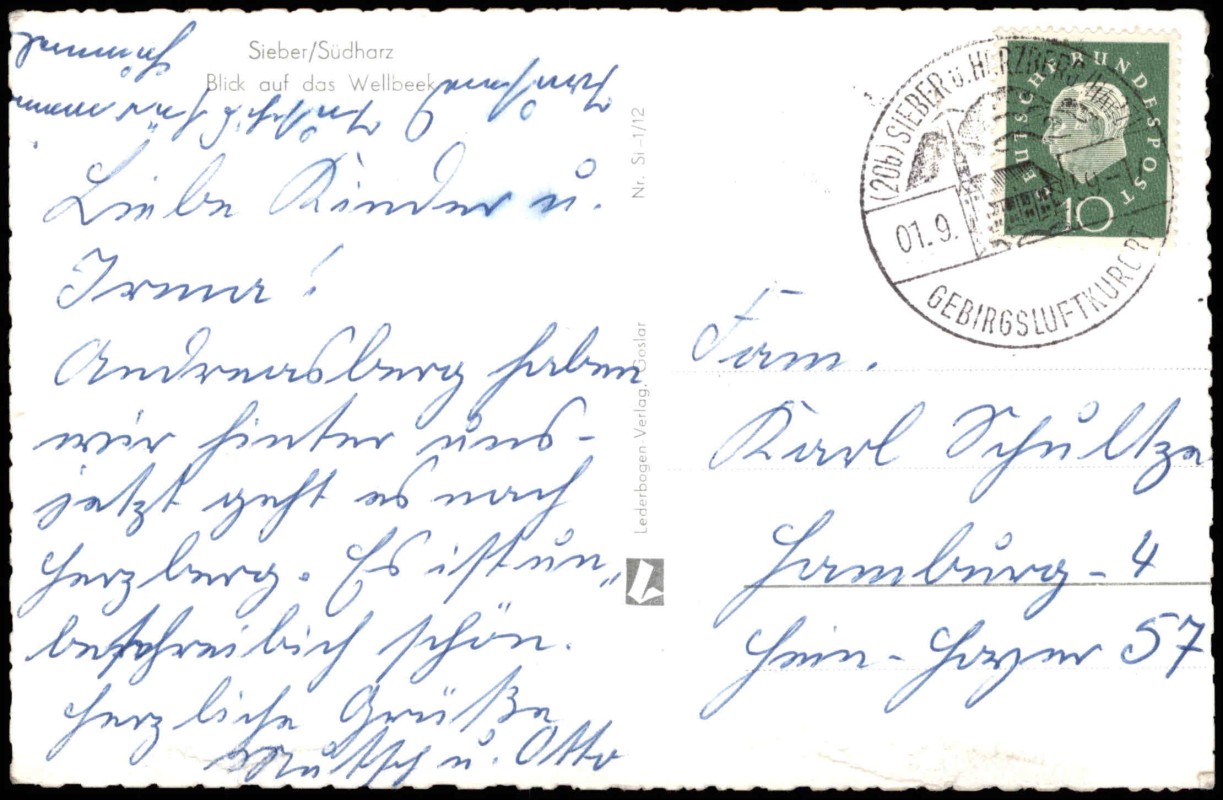 Sieber/Südharz
Blick auf das Wellbeek
Liebe Kinder u.
Irma!
Andreasberg haben
wir hinter uns-
jetzt geht es nach
Herzberg. Es ist un„
beschreibich schön.
Herzliche Grüße
Mutsch u. Otto
Nr. Si-1/12
Lederbogen-Verlag, Goslar
(20b) SIEBER ü. HERZBERG
01.9.
GEBIRGSLUFTKURORT
DEUTSCHE BUNDESPOST
10
Fam.
Karl Schultze
Hamburg-4
Hein-Hoyer 57